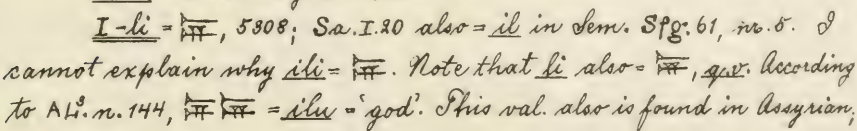 I-li = 𒉌, 5308; Sa.I.20 also = il in Sem. Sfg. 61, nr. 5. I
cannot explain why ili = 𒉌. Note that li also = 𒉌, q.v. According
to AL³. n. 144, 𒉌 𒉌 = ilu = 'god'. This val. also is found in Assyrian,